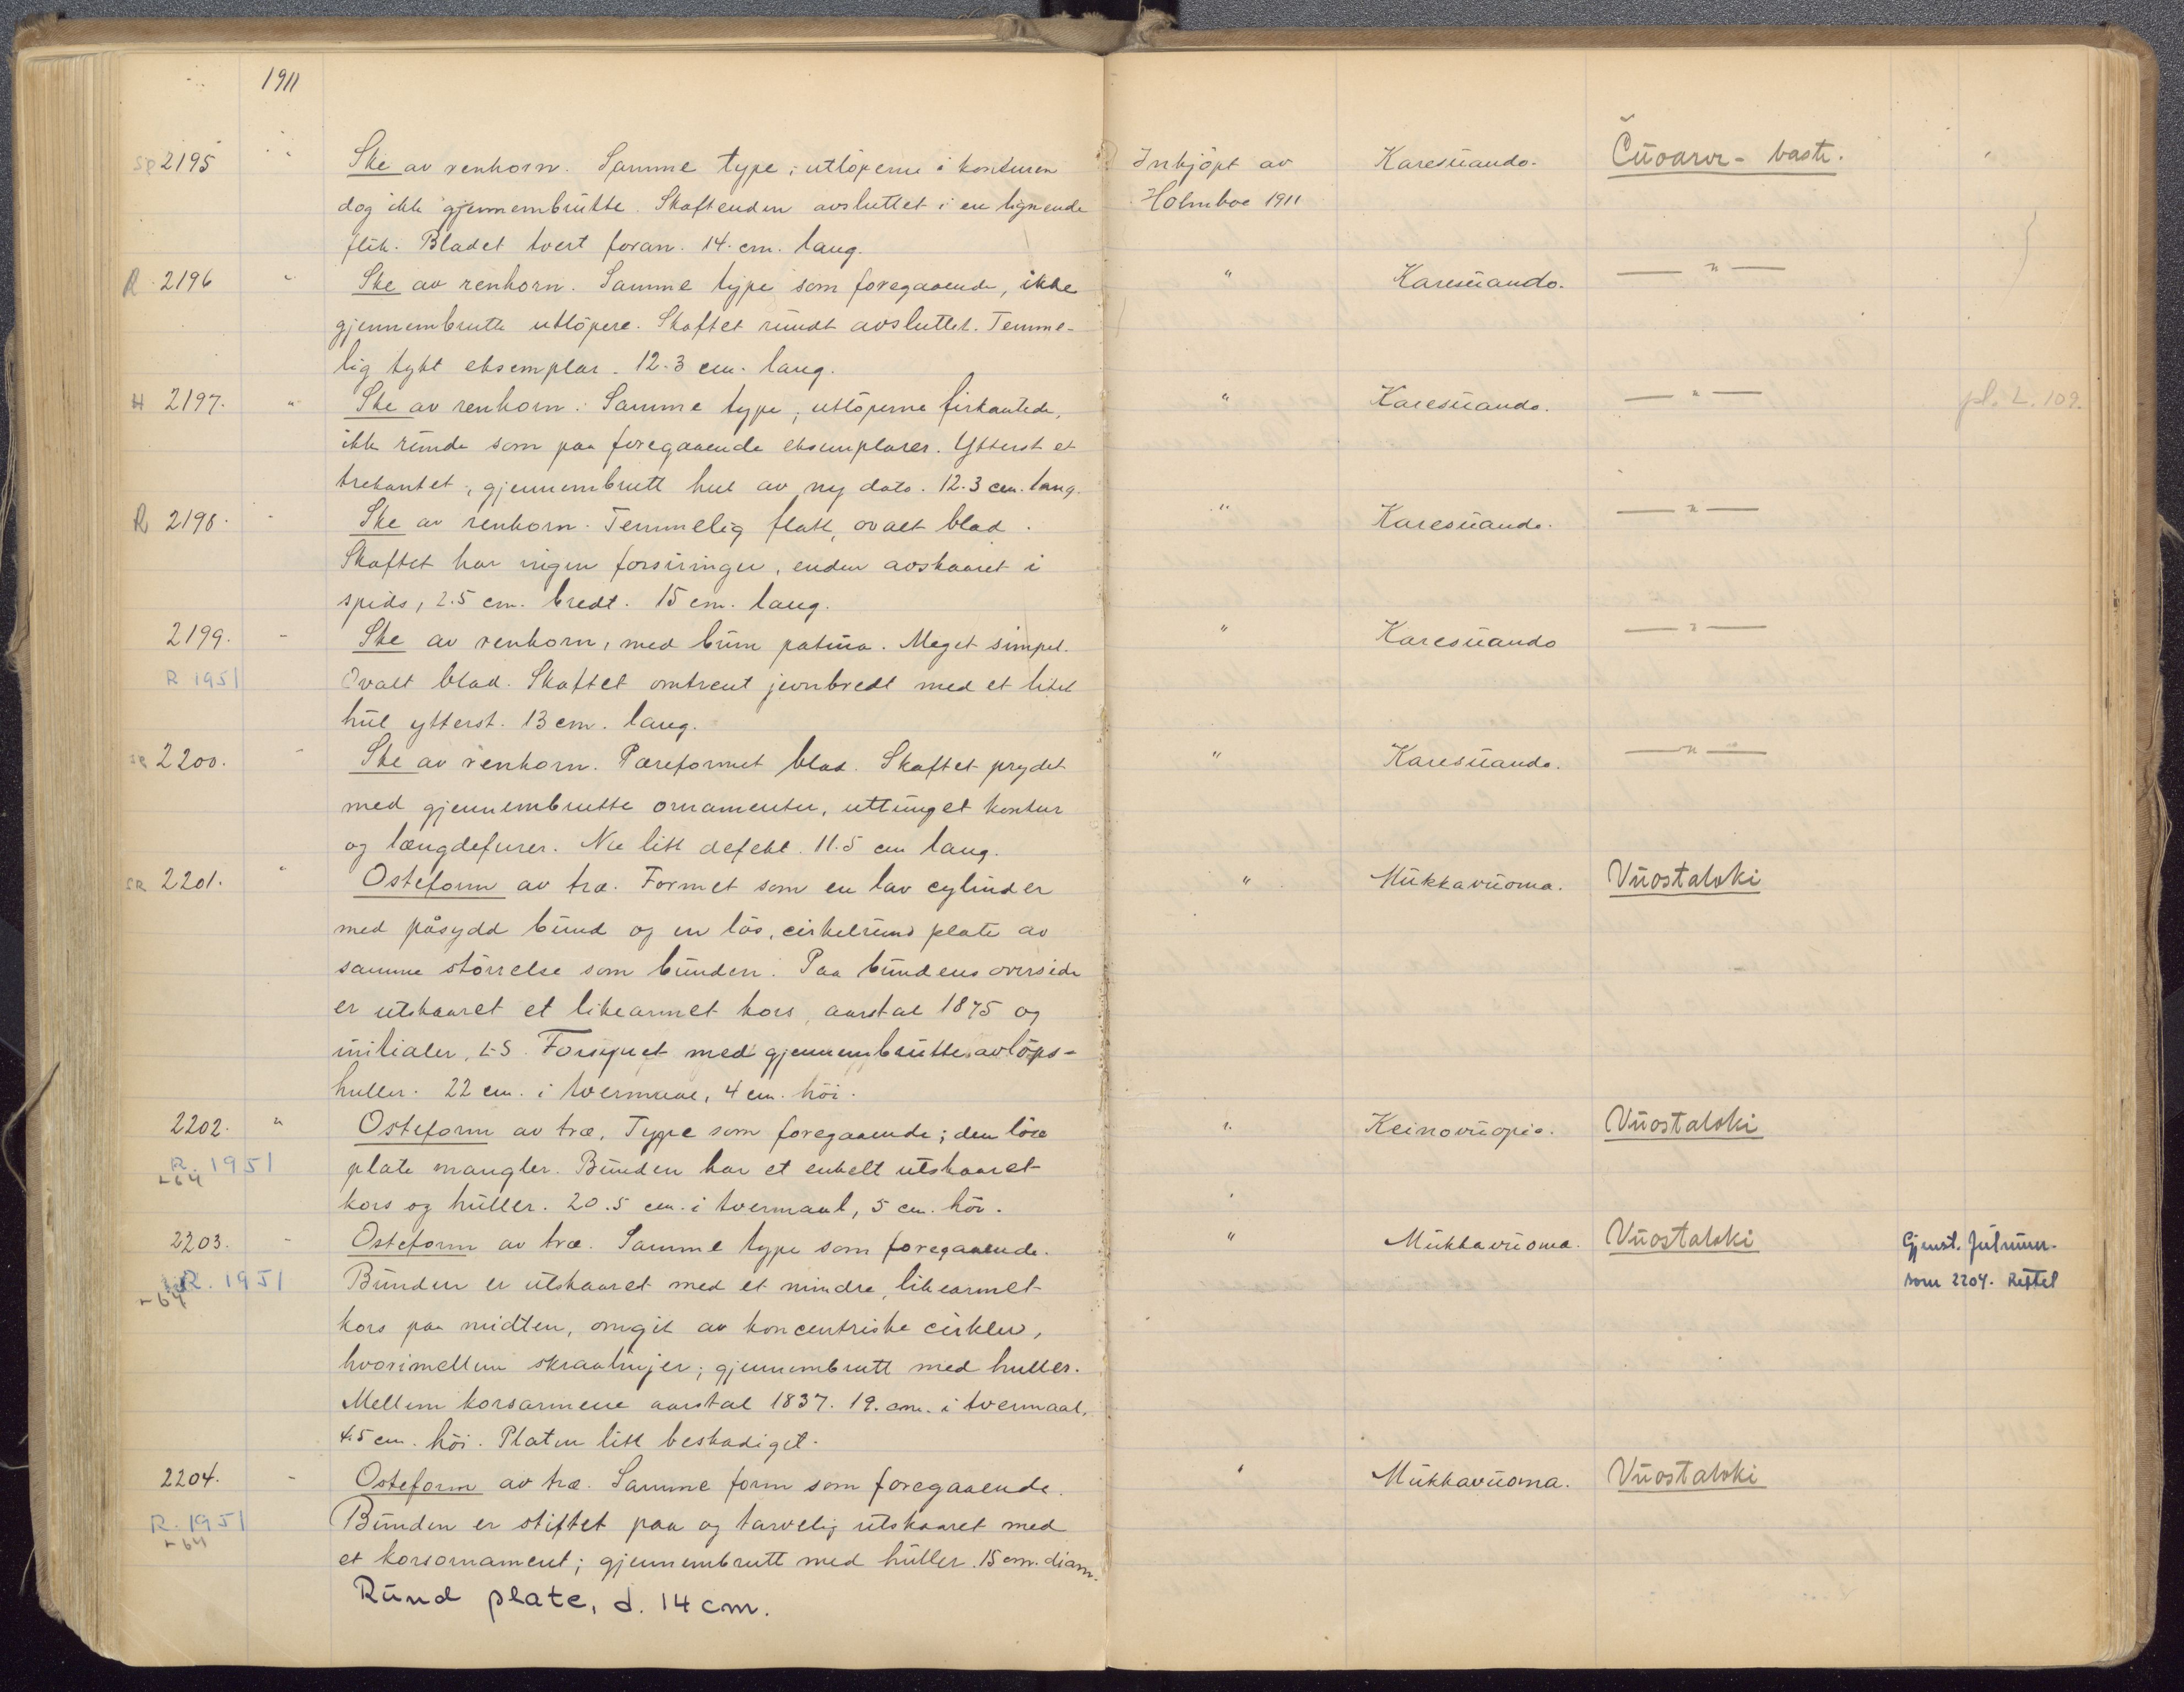 1911
Sp 2195 " Ske av renhorn. Samme type; utlöperne i konturen Indkjöpt av Karesuando. Čuoarvr-baste.
dog ikke gjennembrutte. Skaftenden avsluttet i en lignende Holmboe 1911
flik. Bladet tvert foran. 14. cm. lang.
R 2196 " Ske av renhorn. Samme type som foregaaende, ikke " Karesuando. — " —
gjennembrutte utlöpere. Skaftet rundt avsluttet. Temme-
lig tykt eksemplar. 12.3 cm. lang.
H 2197. " Ske av renhorn. Samme type, utlöperne firkantede, " Karesuando. — " — pl. L. 109.
ikke runde som paa foregaaende eksemplarer. Ytterst et
trekantet, gjennembrutt hul av ny dato. 12.3 cm. lang.
R 2198. " Ske av renhorn. Temmelig flatt, ovalt blad. " Karesuando. — " —
Skaftet har ingen forsiringer, enden avskaaret i
spids, 2.5 cm. bredt. 15 cm. lang.
2199. " Ske av renhorn, med brun patina. Meget simpel. " Karesuando — " —
R 1951 Ovalt blad. Skaftet omtrent jevnbredt med et litet
hul ytterst. 13 cm. lang.
2200. " Ske av renhorn. Pæreformet blad. Skaftet prydet " Karesuando. — " —
med gjennembrutte ornamenter, uttunget kontur
og længdefurer. Nu litt defekt. 11.5 cm lang.
2201. " Osteform av træ. Formet som en lav cylinder " Mukkavuoma. Vuostalvki
med påsydd bund og en lös, cirkelrund plate av
samme störrelse som bunden. Paa bundens overside
er utskaaret et likearmet kors, aarstal 1875 og
initialer, LS. Forsynet med gjennembrutte avlöps-
huller. 22 cm. i tvermaal, 4 cm. höi.
2202. " Osteform av træ. Type som foregaaende; den löse " Keinovuopio. Vuostalvki
R. 1951 plate mangler. Bunden har et enkelt utskaaret
-64
kors og huller. 20.5 cm. i tvermaal, 5 cm. höi.
2203. " Osteform av træ. Samme type som foregaaende. " Mukkavuoma. Vuostalvki Gjenst. feilnumr.
R. 1951 Bunden er utskaaret med et mindre, likearmet som 2204. Rettet
-64
kors paa midten, omgit av koncentriske cirkler,
hvorimellem skraalinjer; gjennembrutt med huller.
Mellem korsarmene aarstal 1837. 19. cm. i tvermaal,
4.5 cm. höi. Platen litt beskadiget.
2204. " Osteform av træ. Samme form som foregaaende. " Mukkavuoma. Vuostalvki
R. 1951 Bunden er stiftet paa og tarvelig utskaaret med
-64
et korsornament; gjennembrutt med huller. 15 cm. diam.
Rund plate, d. 14 cm.